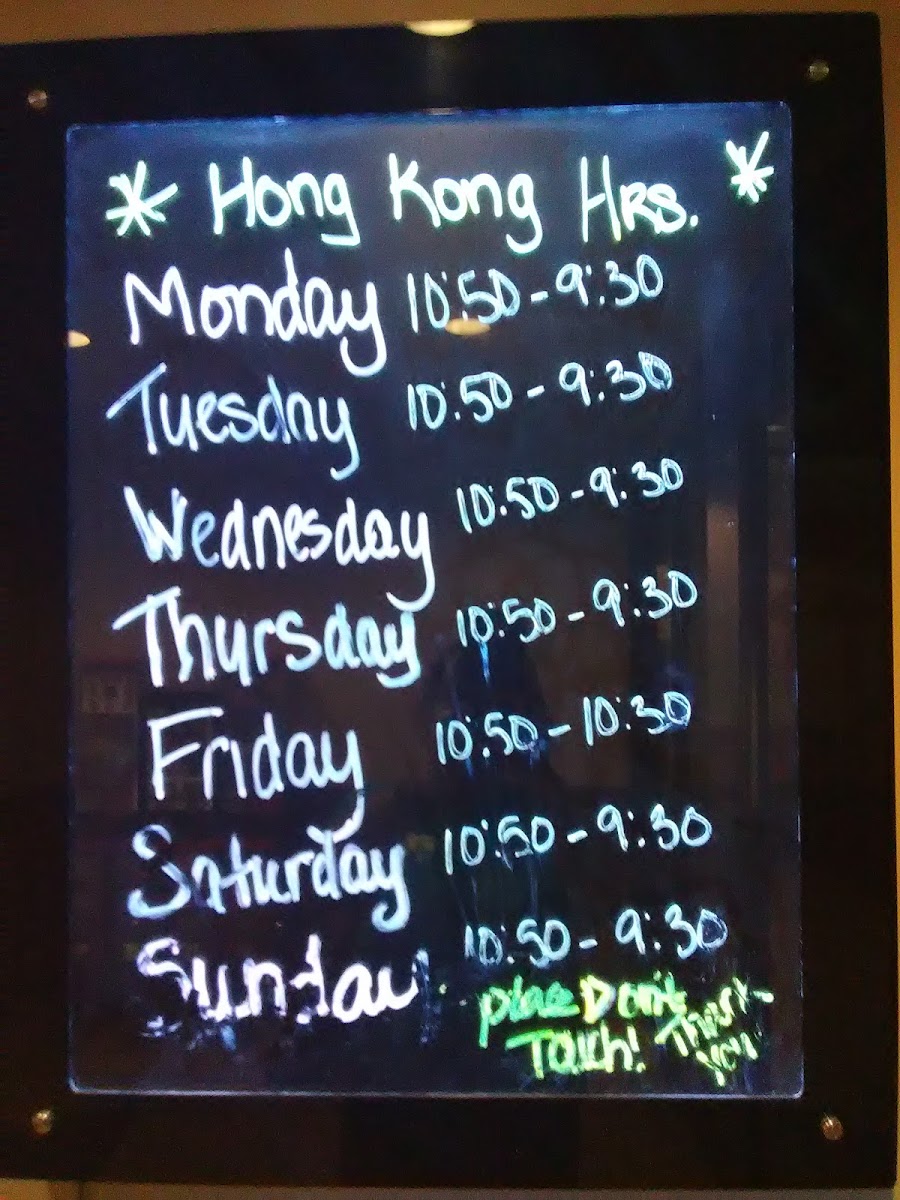 * Hong Kong Hrs. *
Monday 10:50-9:30
Tuesday 10:50-9:30
Wednesday 10:50-9:30
Thursday 10:50-9:30
Friday 10:50-10:30
Saturday 10:50-9:30
Sunday 10:50-9:30
Please Don't Thank-
Touch! you